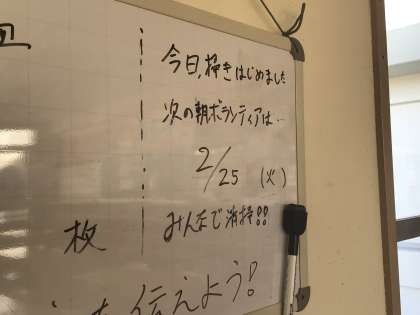 皿
今日,掃きはじめました
次の朝ボランティアは...
2/25 (火)
みんなで清掃!!
枚
を伝えよう!